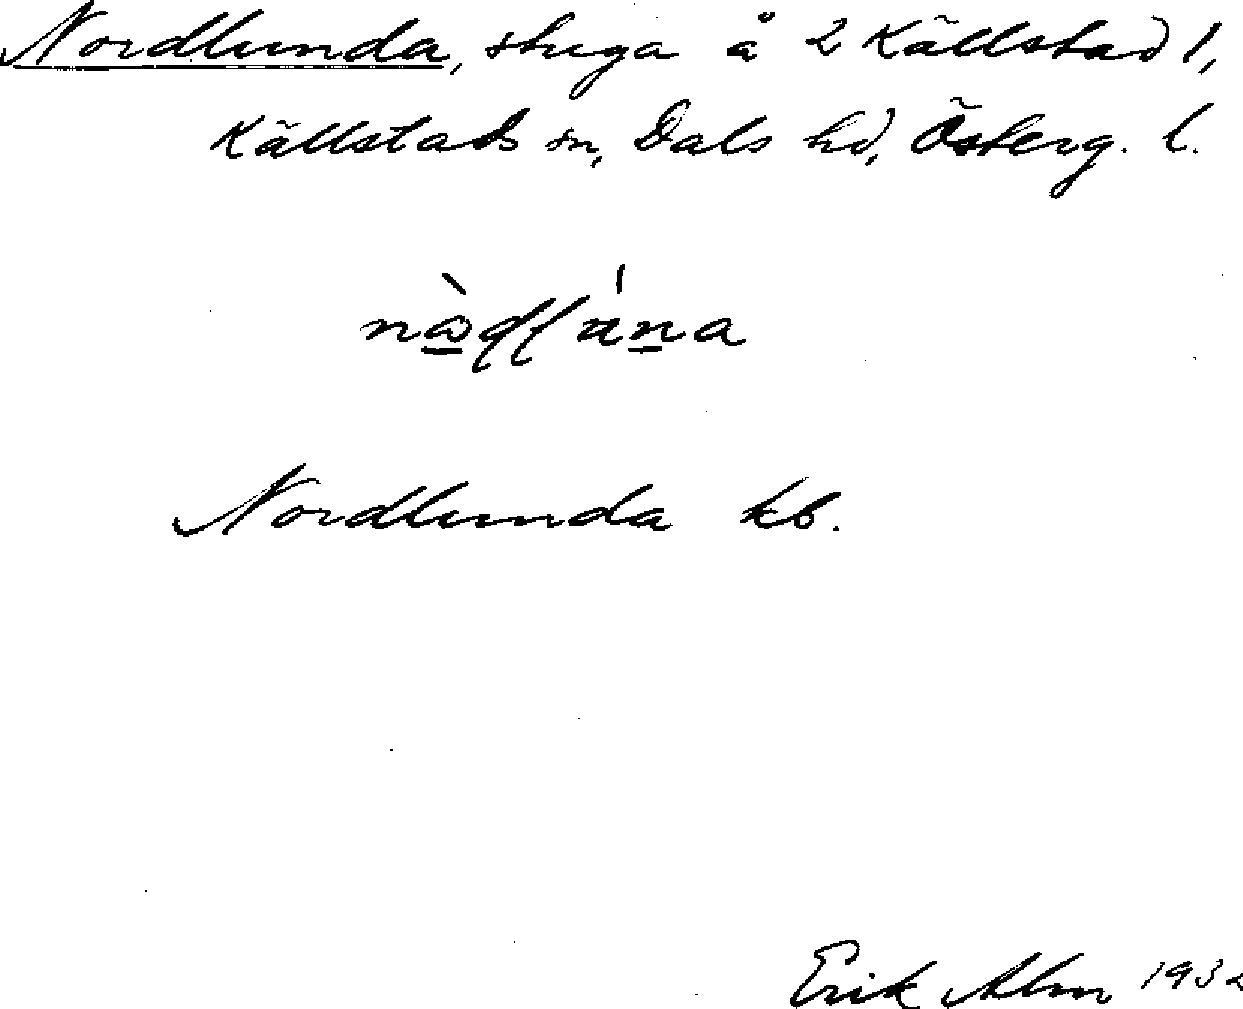 Nordlunda, stuga å 2 Källstad 1,
Källstads sn, Dals hd, Österg. l.
Nordlunda kb.
Erik Alm 1932